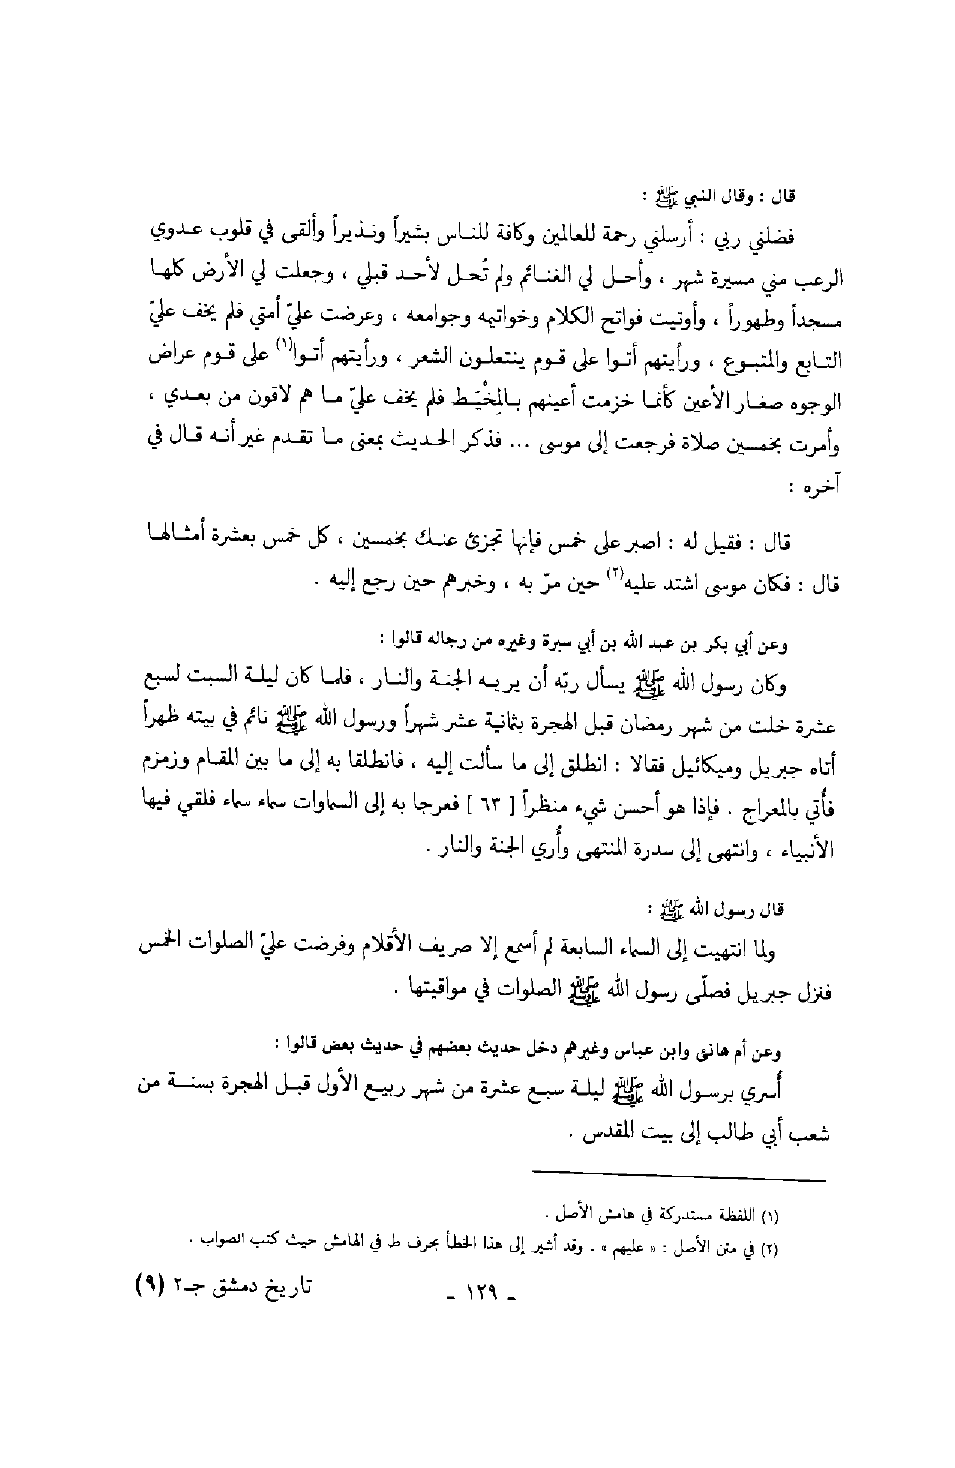 قال : وقال النبي ﷺ :
فضلني ربي : أرسلني رحمة للعالمين وكافة للناس بشيراً ونذيراً وألقى في قلوب عدوي
الرعب مني مسيرة شهر ، وأحل لي الغنائم ولم تُحل لأحد قبلي ، وجعلت لي الأرض كلها
مسجداً وطهوراً ، وأوتيت فواتح الكلام وخواتيمه وجوامعه ، وعرضت عليّ أمتي فلم يخف عليّ
التابع والمتبوع ، ورأيتهم أتوا على قوم ينتعلون الشعر ، ورأيتهم أتوا(١) على قوم عراض
الوجوه صغار الأعين كأنما خزمت أعينهم بالمِخْيَط فلم يخف عليّ ما هم لاقون من بعدي ،
وأمرت بخمسين صلاة فرجعت إلى موسى ... فذكر الحديث بمعنى ما تقدم غير أنه قال في
آخره :
قال : فقيل له : اصبر على خمس فإنها تجزئ عنك بخمسين ، كل خمس بعشرة أمثالها
قال : فكان موسى اشتد عليه(٢) حين مرّ به ، وخبرهم حين رجع إليه .
وعن أبي بكر بن عبد الله بن أبي سبرة وغيره من رجاله قالوا :
وكان رسول الله ﷺ يسأل ربّه أن يريه الجنة والنار ، فلما كان ليلة السبت لسبع
عشرة خلت من شهر رمضان قبل الهجرة بثمانية عشر شهراً ورسول الله ﷺ نائم في بيته ظهراً
أتاه جبريل وميكائيل فقالا : انطلق إلى ما سألت إليه ، فانطلقا به إلى ما بين المقام وزمزم
فأُتي بالمعراج . فإذا هو أحسن شيء منظراً [ ٦٣ ] فعرجا به إلى السماوات سماء سماء فلقي فيها
الأنبياء ، وانتهى إلى سدرة المنتهى وأُري الجنة والنار .
قال رسول الله ﷺ :
ولما انتهيت إلى السماء السابعة لم أسمع إلا صريف الأقلام وفرضت عليّ الصلوات الخمس
فنزل جبريل فصلّى رسول الله ﷺ الصلوات في مواقيتها .
وعن أم هانئ وابن عباس وغيرهم دخل حديث بعضهم في حديث بعض قالوا :
أُسري برسول الله ﷺ ليلة سبع عشرة من شهر ربيع الأول قبل الهجرة بسنة من
شعب أبي طالب إلى بيت المقدس .
(١) اللفظة مستدركة في هامش الأصل .
(٢) في متن الأصل : « عليهم » . وقد أشير إلى هذا الخطأ بحرف ط في الهامش حيث كتب الصواب .
- ١٢٩ -
تاريخ دمشق جـ٢ (٩)